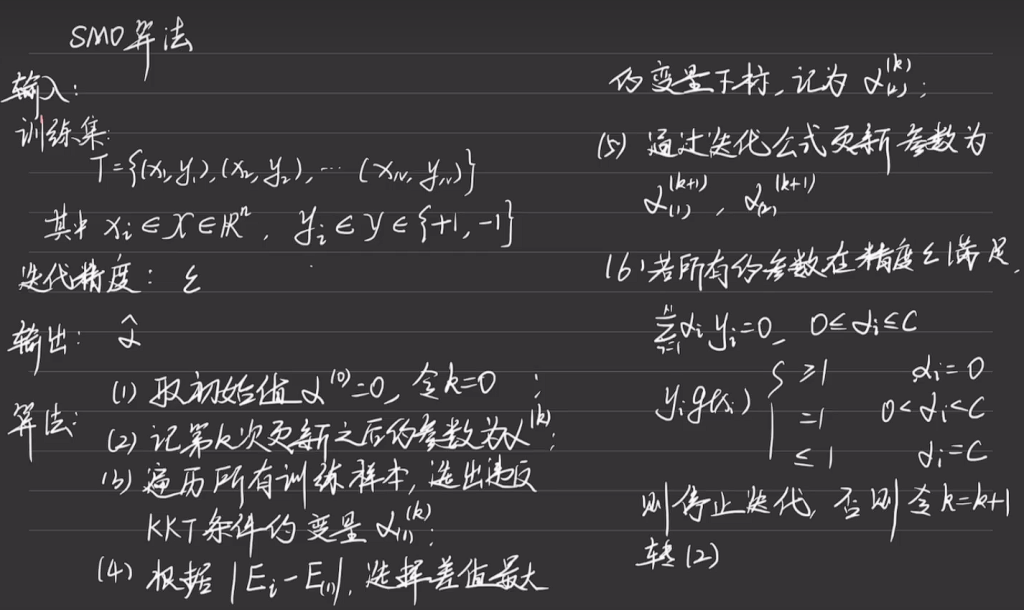 SMO算法
输入:
训练集:
T={(x₁,y₁),(x₂,y₂),…(x_N,y_N)}
其中 x_i∈X∈ℝⁿ, y_i∈Y∈{+1,-1}
迭代精度: ε
输出: α̂
算法:
(1) 取初始值α^(0)=0, 令k=0;
(2) 记第k次更新之后的参数为α^(k);
(3) 遍历所有训练样本, 选出违反
KKT条件的变量α_(1)^(k);
(4) 根据|E_i-E_(1)|, 选择差值最大
的变量下标, 记为α_(2)^(k);
(5) 通过迭代公式更新参数为
α_(1)^(k+1), α_(2)^(k+1)
(6) 若所有的参数在精度ε满足,
∑_{i=1}^N α_i y_i=0, 0≤α_i≤C
y_i g(x_i) { ≥1 α_i=0
=1 0<α_i<C
≤1 α_i=C
则停止迭代, 否则令k=k+1
转(2)